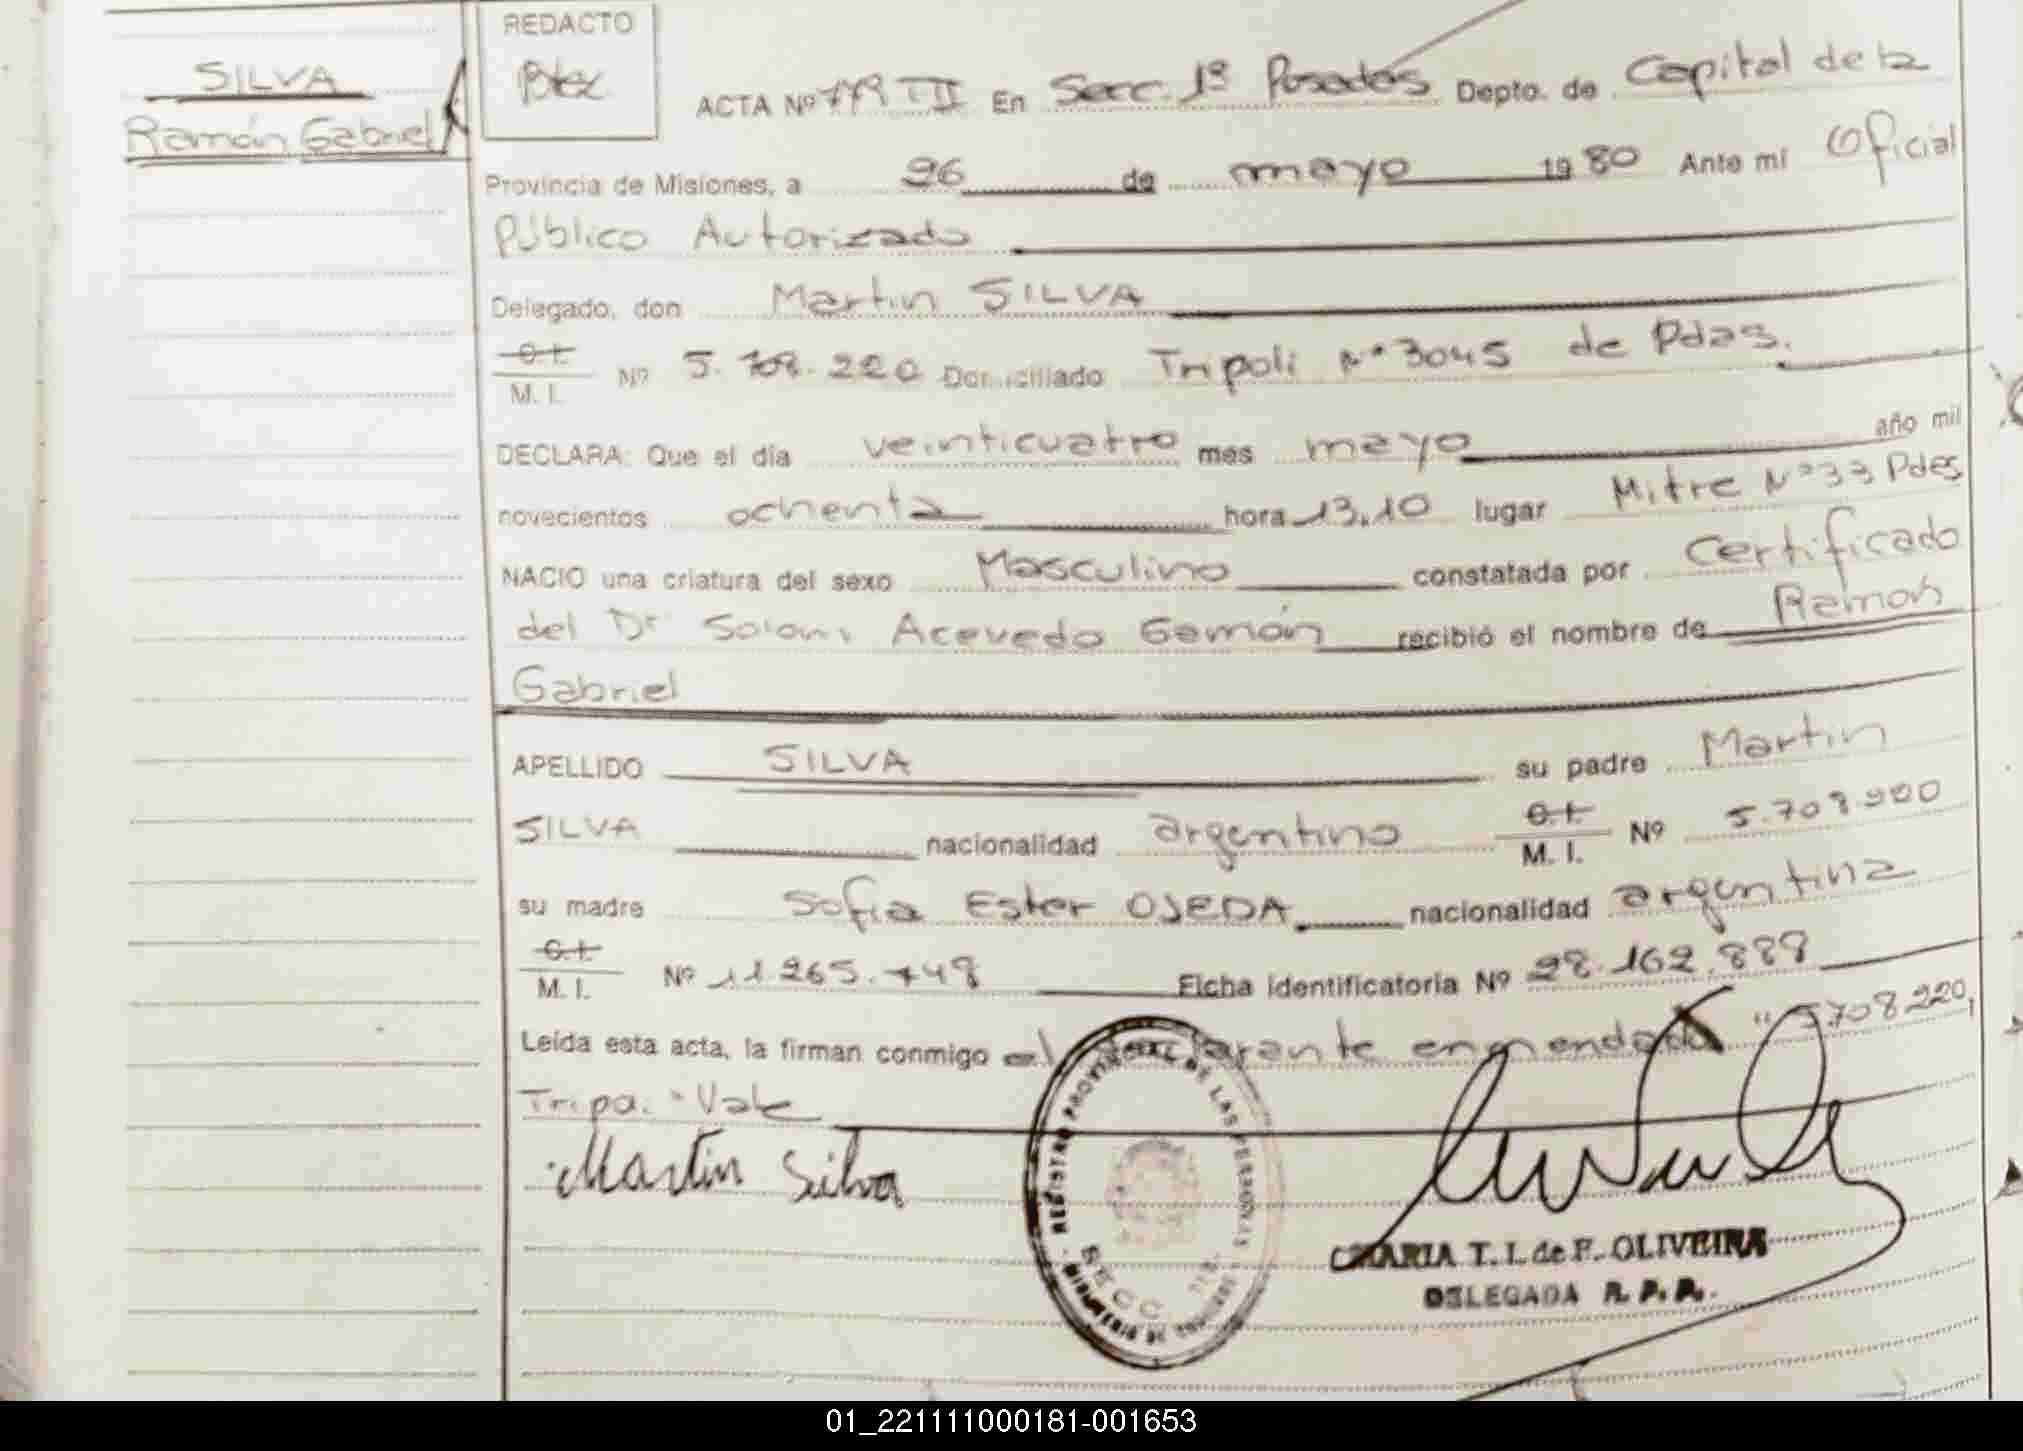 SILVA
Ramón Gabriel
REDACTO
ACTA Nº TII En Secc. 1ª Posadas Depto. de Capital de la
Provincia de Misiones, a 26 de mayo 1980 Ante mí Oficial
Público Autorizado
Delegado, don Martin SILVA
C.I. M. I. Nº 5.708.220 Domiciliado Tripoli Nº 3045 de Pdas.
DECLARA: Que el día veinticuatro mes mayo año mil
novecientos ochenta hora 13,10 lugar Mitre Nº 33 Pdas
NACIO una criatura del sexo Masculino constatada por Certificado
del Dr Acevedo recibió el nombre de Ramón
Gabriel
APELLIDO SILVA su padre Martin
SILVA nacionalidad argentino C.I. M. I. Nº 5.708.220
su madre Sofia Ester OJEDA nacionalidad argentina
C.I. M. I. Nº 11.265.748 Ficha identificatoria Nº 28.162.888
Leída esta acta, la firman conmigo el declarante enmendado "5708220,
Vale
Martin Silva
REGISTRO PROVINCIAL DE LAS PERSONAS
SECC
MINISTERIO DE
MARIA T. I. de F. OLIVEIRA
DELEGADA R. P. P.
01_221111000181-001653